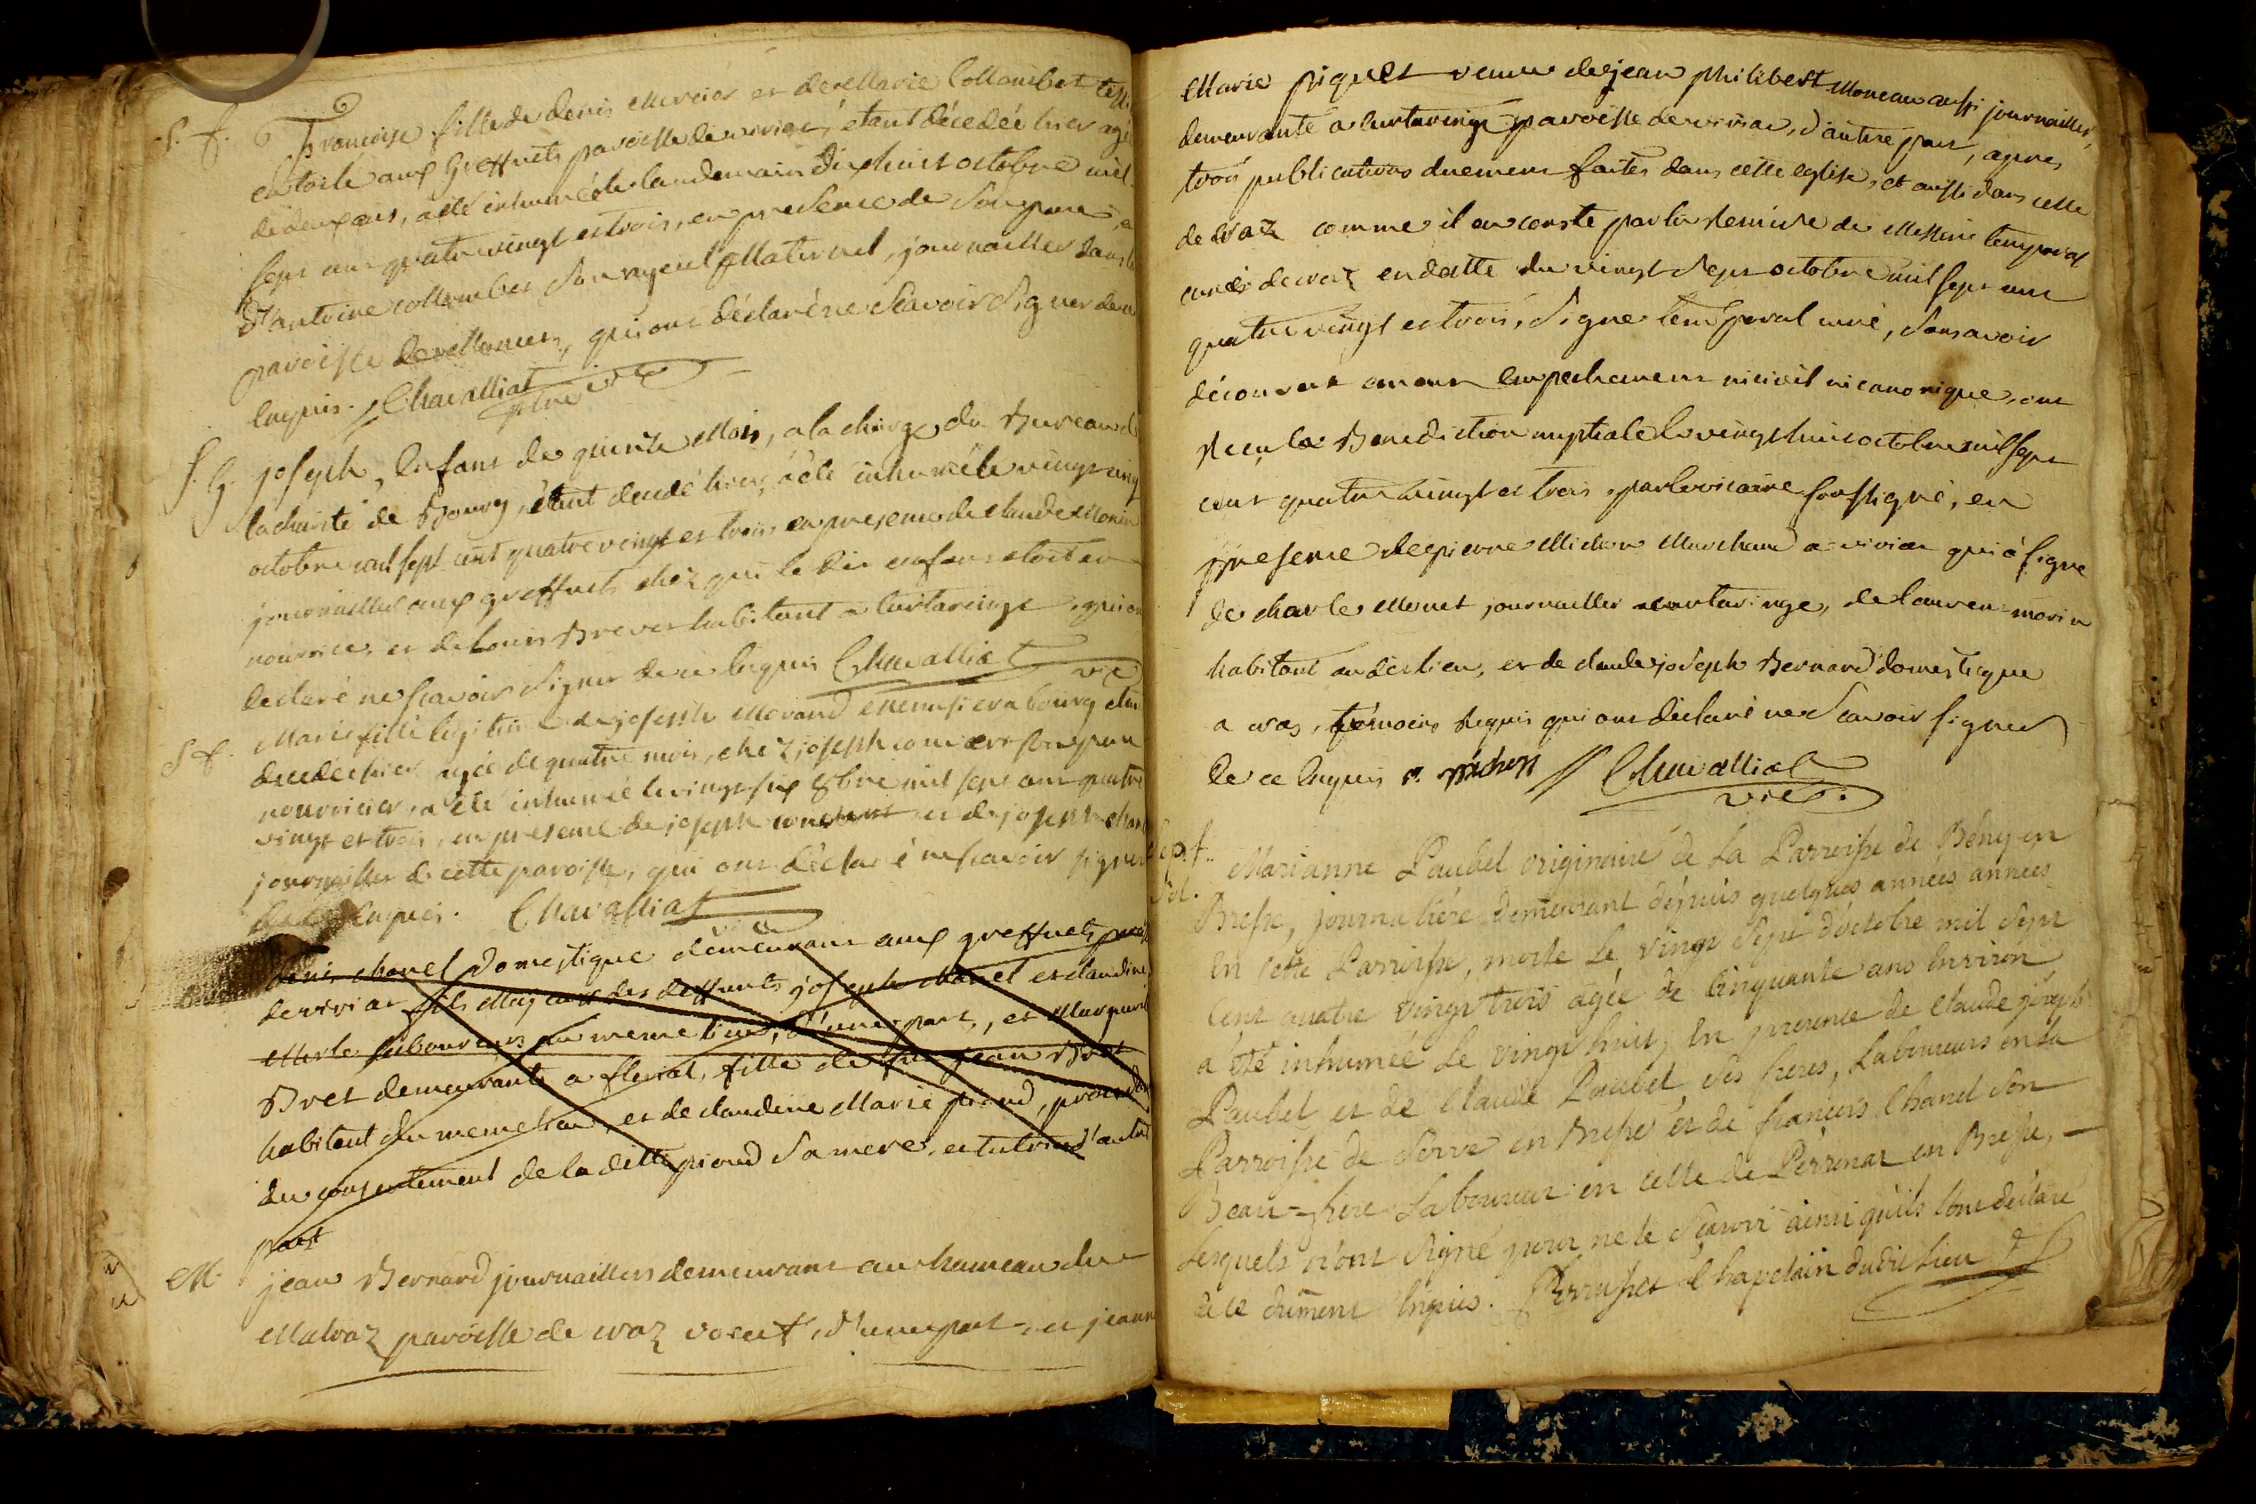 S. f. Francoise fille de denis Mercier et de Marie Collombet
en toile aux Greffnets paroisse de viriat, étant décedée hier agée
de deux ans, a été inhumée le landemain dixhuit octobre mil
sept cent quatre vingt et trois, en presence de son pere, et
d'antoine collombet son ayeul Maternel, journaillier dans la
paroisse de, qui ont déclaré ne Scavoir Signer de ce
Enquis. Chavalliat
vic
S. G. joseph, Enfant de quinze Mois, a la charge du Bureau de
la charité de Bourg, étant decedé hier, a été inhumé le vingt cinq
octobre mil sept cent quatre vingt et trois en presence de claude Monin
journaillier aux greffnets chez qui le dit enfant etoit en
nourrice, et de Louis Brevet habitant a Curtaringe, qui ont
declaré ne scavoir signer de ce Enquis Chavalliat
vic
S f. Marie fille legitime de joseph Morand Menusier a bourg étant
decedée hier agée de quatre mois, chez joseph convert son pere
nourricier, a été inhumée le vingt six 8bre mil sept cent quatre
vingt et trois, en presence de joseph convert et de joseph
journaillier de cette paroisse, qui ont déclaré ne scavoir signer
de ce Enquis. Chavalliat
vic
denis chanel Domestique demeurant aux greffnets paroisse
de viriat fils Majeur des deffunts joseph chanel et claudine
Merle laboureurs au meme lieu, d'une part, et Marguerite
Bret demeurante a fleriat, fille de feu jean Bret
habitant du meme lieu, et de claudine Marie piroud, procedant
du consentement de la ditte piroud sa mere, et tutrice d'autre
part
M. jean Bernard journaillier demeurant au hameau de
Malvaz paroisse de craz voeuf, d'une part, et jeanne
Marie piquet veuve de jean philibert Moneau aussi journaillier,
demeurante a Curtaringe paroisse de viriat, d'autre part, apres
trois publications duement faites dans cette eglise, et aussi dans celle
de craz comme il en conste par la Remise de Messire temporal
curé de craz en datte du vingt sept octobre mil sept cent
quatre vingt et trois, Signé temporal curé, sans avoir
découvert aucun empechement ni civil ni canonique, ont
Recu la Benediction nuptiale le vingt huit octobre mil sept
cent quatre vingt et trois, par le vicaire soussigné, en
presence de pierre Michon Marchand a viriat qui a signé
de charle Monet journaillier a curtaringe, de laurent morin
habitant au dit lieu, et de claude joseph Bernard domestique
a cras, témoins Requis qui ont déclaré ne Scavoir signer
de ce Enquis p. michon Chavalliat
vic.
Sep. f.
Marianne Paubel originaire de La Parroisse de Bény en
Bresse, journaliére demeurant dépuis quelques années années
En cette Parroisse, morte le vingt Sept d'octobre mil Sept
Cent quatre vingt trois agée de Cinquante ans Environ
a été inhumée le vingt huit, En presence de Claude joseph
Paubel et de Claude Paubel ses freres, Laboureurs en la
Parroisse de Serve en Bresse et de francois Chanel son
Beau-frere Laboureur en celle de Péronas en Bresse,
Lesquels n'ont Signé pour ne le Scavoir ainsi qu'ils l'ont déclaré
de ce dûment Enquis. Perrusset Chapelain dudit Lieu